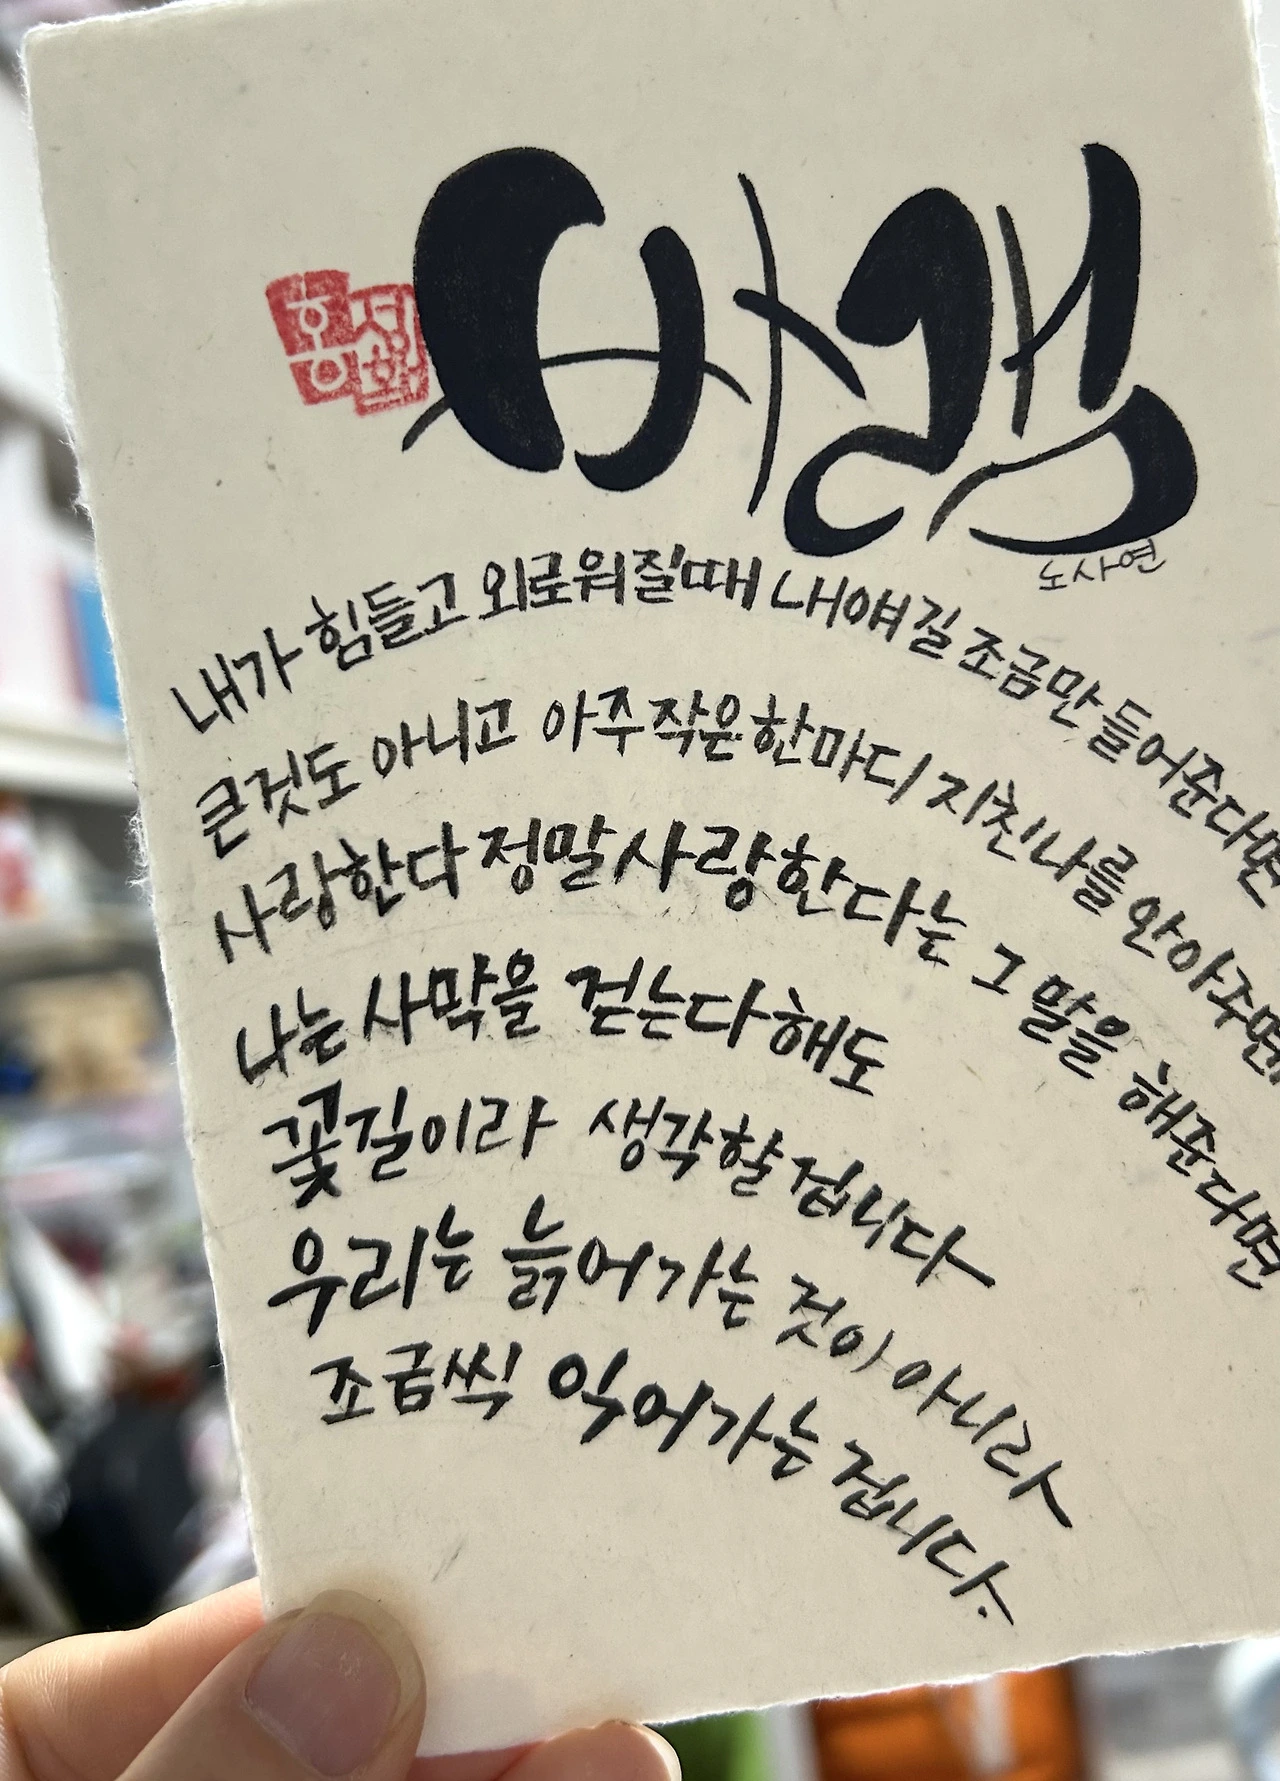 바램
노사연
내가 힘들고 외로워질때 내얘길 조금만 들어준다면
큰것도 아니고 아주작은한마디 지친나를 안아주면
사랑한다 정말사랑한다는 그 말을 해준다면
나는 사막을 걷는다해도
꽃길이라 생각할겁니다
우리는 늙어가는 것이 아니라
조금씩 익어가는 겁니다.